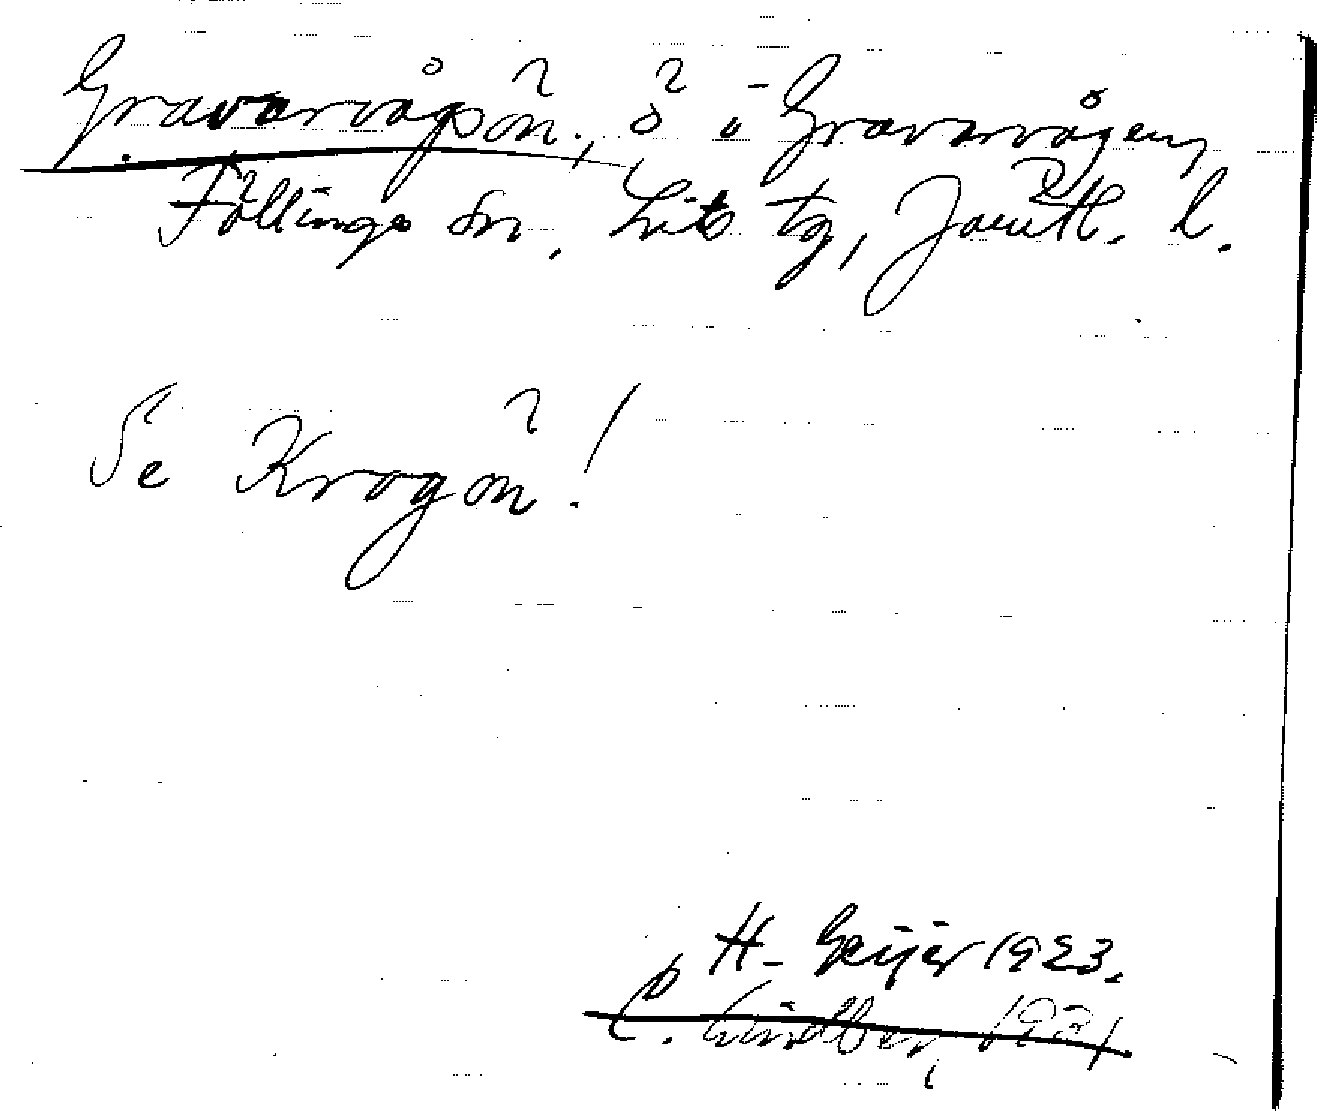 Gravarvågsön, ö i Gravarvågen,
Föllinge sn. Lits tg, Jämtl. l.
Se Krogön!
H. Geijer 1923.